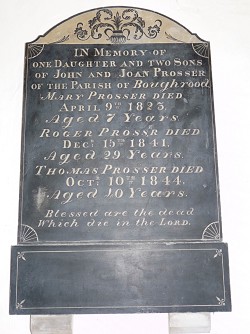 IN MEMORY OF
ONE DAUGHTER AND TWO SONS
OF JOHN AND JOAN PROSSER
OF THE PARISH OF Boughrood
MARY PROSSER DIED
APRIL 9TH 1823,
Aged 7 Years
ROGER PROSSR DIED
DECR 15TH 1841,
Aged 29 Years.
THOMAS PROSSER DIED
OCTR 10TH 1844,
Aged Years.
Blessed are the dead
Which die in the LORD.